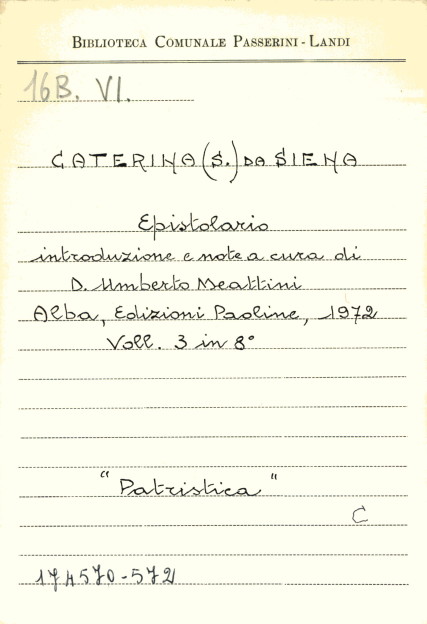 BIBLIOTECA COMUNALE PASSERINI - LANDI
16B. VI.
CATERINA (S.) DA SIENA
Epistolario
introduzione e note a cura di
D. Umberto Meattini
Alba, Edizioni Paoline, 1972
Voll. 3 in 8°
"Patristica"
C
174570-572